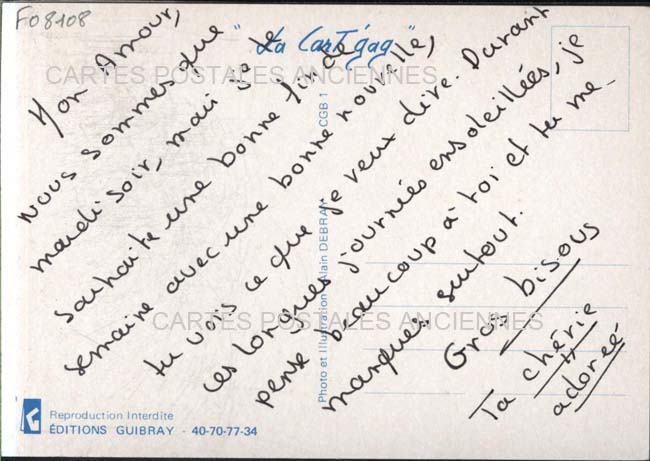 F08108
"La Cart'gag"
CARTES POSTALES ANCIENNES
Mon Amour,
Nous sommes que
mardi soir, mais je te
souhaite une bonne fin de
semaine avec une bonne nouvelle,
tu vois ce que je veux dire. Durant
ces longues journées ensoleillées, je
pense beaucoup à toi et tu me
marques surtout.
Gros bisous
Ta chérie
adorée
Photo et Illustration Alain DEBRAY CGB 1
CARTES POSTALES ANCIENNES
Reproduction Interdite
ÉDITIONS GUIBRAY - 40-70-77-34